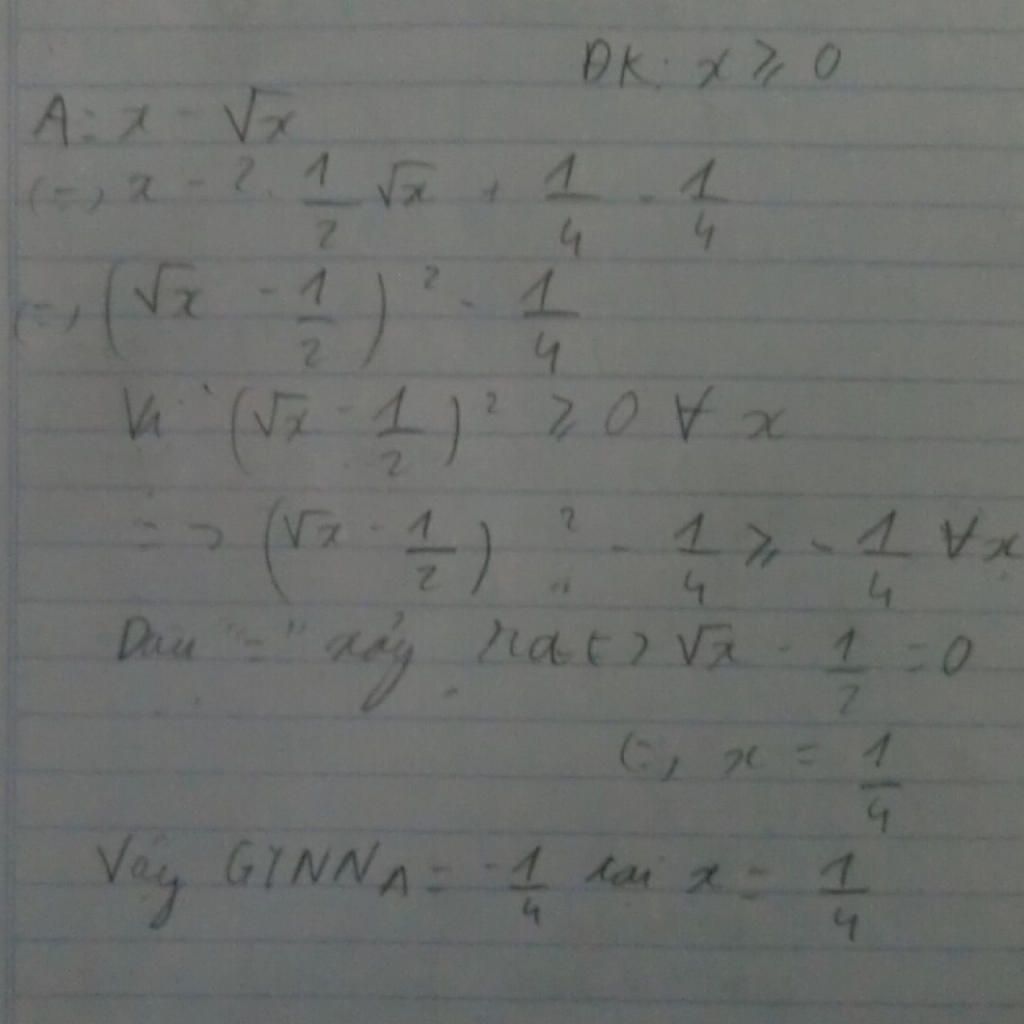 ĐK: x ≥ 0
A = x - √x
(=) x - 2 . 1/2 √x + 1/4 - 1/4
(=) (√x - 1/2)² - 1/4
Vì (√x - 1/2)² ≥ 0 ∀ x
=> (√x - 1/2)² - 1/4 ≥ - 1/4 ∀ x
Dấu "=" xảy ra (=) √x - 1/2 = 0
(=) x = 1/4
Vậy GTNN A = -1/4 tại x = 1/4